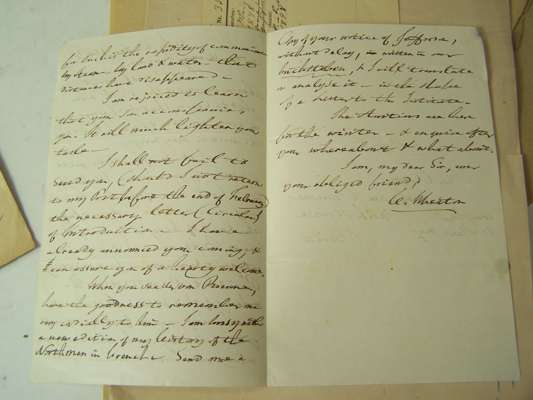 for such is the rapidity of communication
by steam by land & water – that
distances have disappeared –
I am rejoiced to learn
that you
you. It will much lighten your
task –
I shall not fail to
send you, (should I not return
to my Post before the end of February)
the necessary letter (circular)
of Introduction. I have
already announced your coming, &
can assure you of a hearty welcome.
When you see Mr von Roenne,
have the goodness to remember me
very cordially to him – I am busy with
a new edition of my History of the
Northmen in French. Send me a
Copy of your notice of
without delay, as written in
& I will translate
& analyse it – in the shape
of a letter to the Institute.
The are here
for the winter – & enquire after
your whereabout & what about.
I am, my dear Sir, ever
your obliged friend,
Wheaton